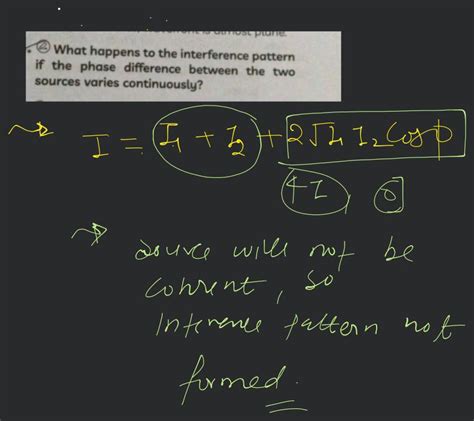 ② What happens to the interference pattern
if the phase difference between the two
sources varies continuously?
I = I₁ + I₂ + 2√I₁ I₂ Cos φ
4I, 0
source will not be
cohrent, so
Interence pattern not
formed.